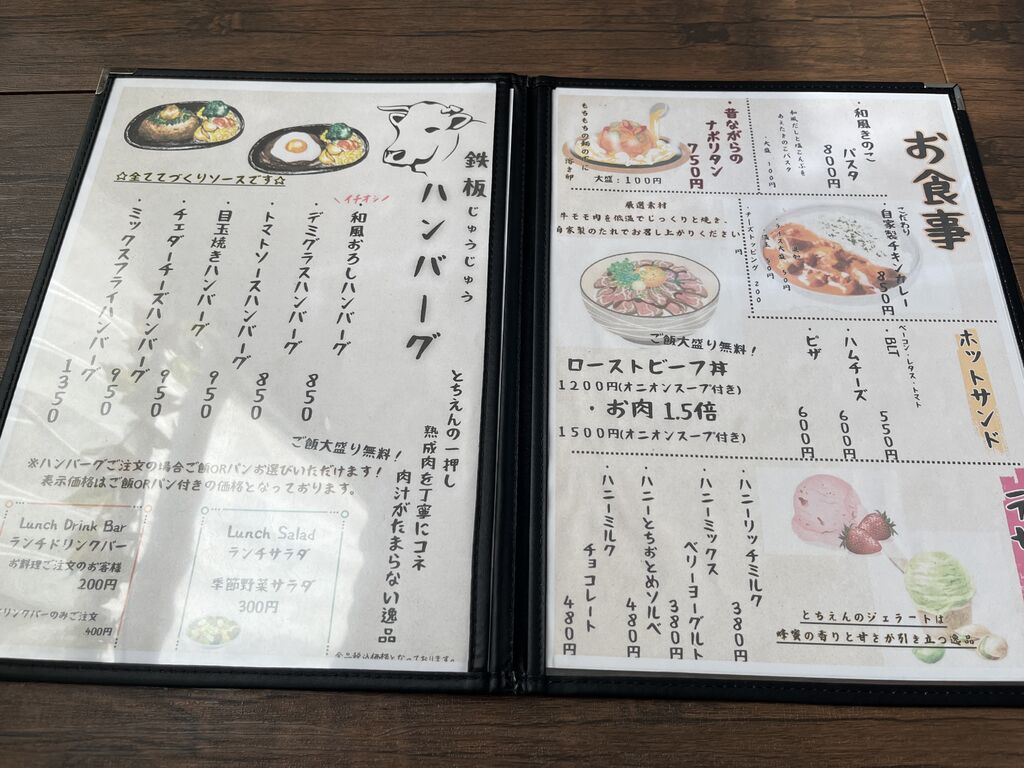 鉄板じゅうじゅう
ハンバーグ
☆全ててづくりソースです☆
イチオシ
・和風おろしハンバーグ
・デミグラスハンバーグ 850
・トマトソースハンバーグ 850
・目玉焼きハンバーグ 950
・チェダーチーズハンバーグ 950
・ミックスフライハンバーグ 1350
950
とちえんの一押し
熟成肉を丁寧にコネ
肉汁がたまらない逸品
ご飯大盛り無料!
※ハンバーグご注文の場合ご飯ORパンお選びいただけます!
表示価格はご飯ORパン付きの価格となっております。
Lunch Drink Bar
ランチドリンクバー
お料理ご注文のお客様
200円
リンクバーのみご注文
400円
Lunch Salad
ランチサラダ
季節野菜サラダ
300円
全品税込価格となっております。
お食事
・和風きのこ
パスタ
800円
和風だしと塩こんぶを
あえたきのこパスタ
・大盛 100円
・昔ながらの
ナポリタン
750円
もちもちの麺の下に
溶き卵
大盛:100円
こだわり
自家製チキンカレー
850円
チーズトッピング 200
円
厳選素材
牛モモ肉を低温でじっくりと焼き、
自家製のたれでお召し上がりください
ご飯大盛り無料!
ローストビーフ丼
1200円(オニオンスープ付き)
・お肉1.5倍
1500円(オニオンスープ付き)
ホットサンド
・BLT 550円
ベーコン・レタス・トマト
・ハムチーズ 600円
・ピザ 600円
・ハニーリッチミルク 380円
・ハニーミックス
ベリーヨーグルト 380円
・ハニーとちおとめソルベ 480円
・ハニーミルク
チョコレート 480円
とちえんのジェラートは
蜂蜜の香りと甘さが引き立つ逸品